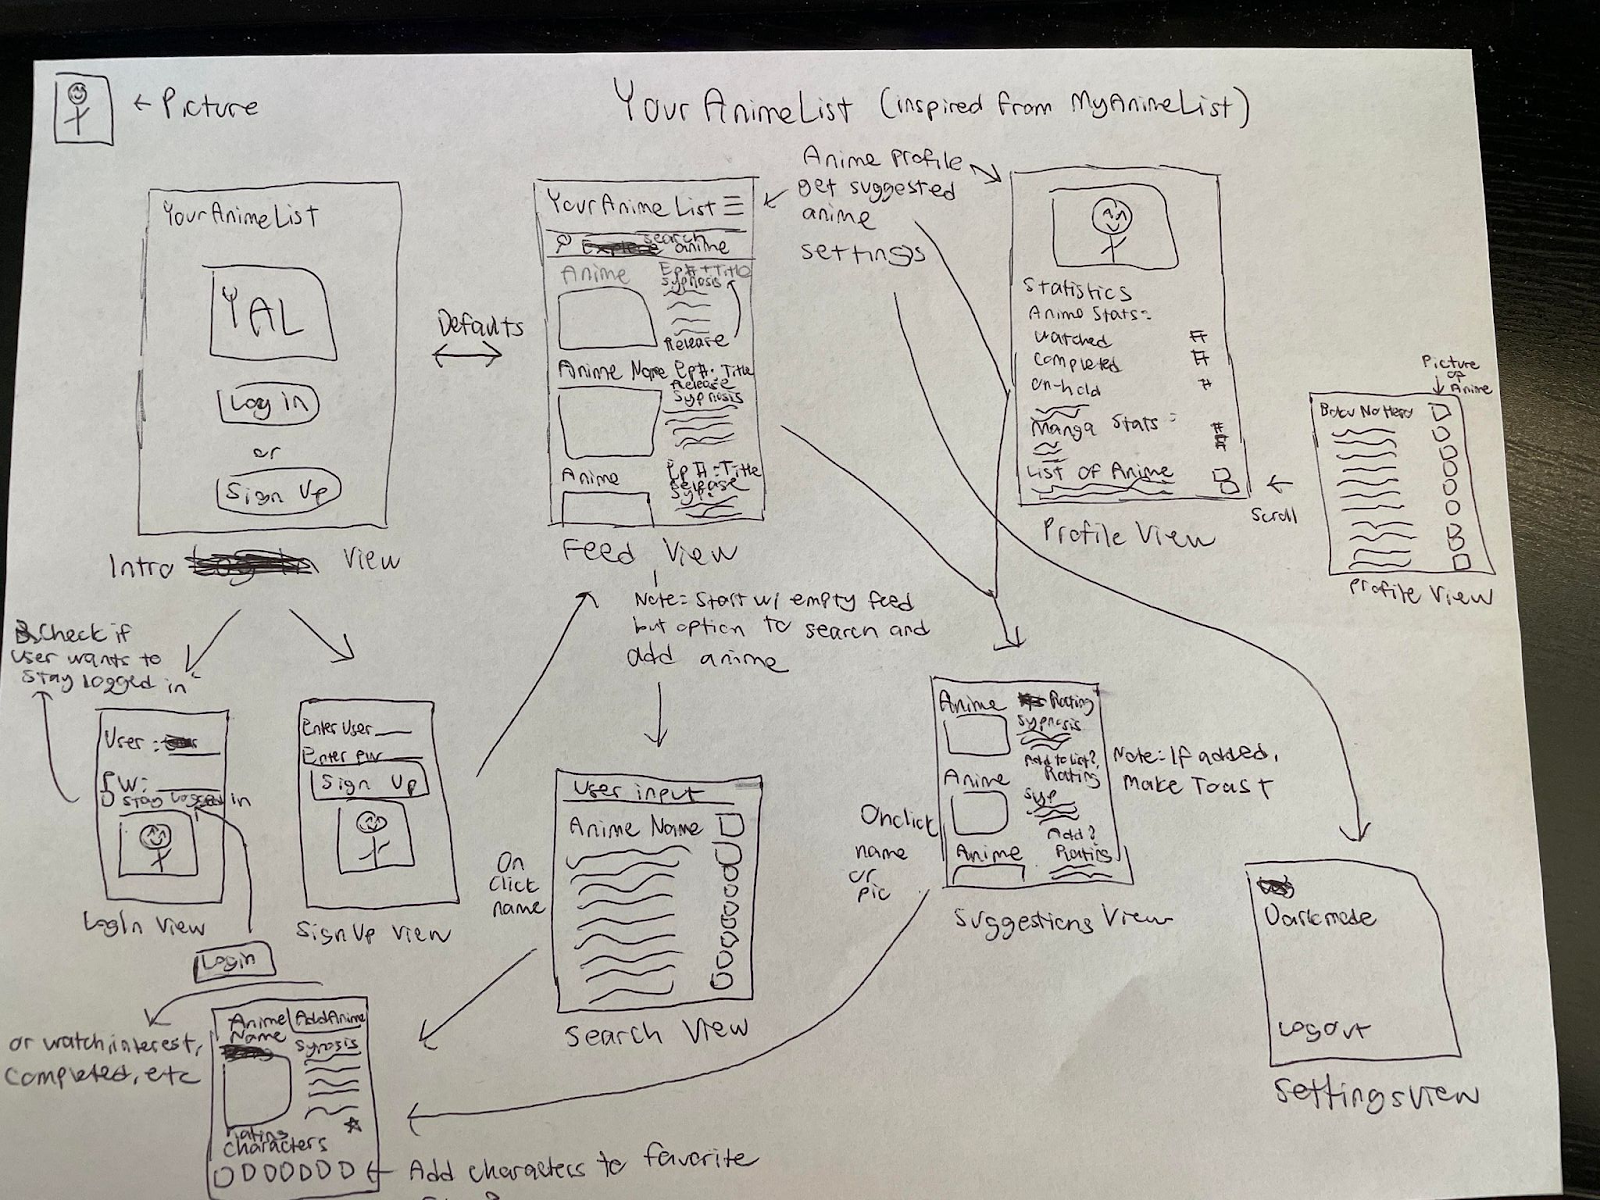 ← Picture
YourAnimeList (inspired from MyAnimeList)
YourAnimeList
YAL
Log in
or
Sign Up
Intro View
Defaults
YourAnimeList
search anime
Anime
Ep# + Title
Sypnosis
Release
Anime Name
Ep#: Title
Release
Sypnosis
Anime
Ep#: Title
Release
Syp:
Feed View
Note: Start w/ empty feed
but option to search and
add anime
Anime profile
get suggested
anime
settings
Statistics
Anime Stats:
watched #
completed #
on-hold #
Manga Stats: #
#
List of Anime
Profile View
Scroll
Picture
of
Anime
Boku No Hero
Profile View
Check if
user wants to
stay logged in
User:
PW:
Stay logged in
LogIn View
Login
Enter User
Enter pw
Sign Up
SignUp View
User input
Anime Name
Search View
On
click
name
Anime Rating
Sypnosis
Add to list?
Anime Rating
Syp
Add?
Anime Rating
Suggestions View
Note: If added,
Make Toast
Onclick
name
or
pic
Darkmode
Logout
Settingsview
or watch, interest,
completed, etc
Anime
Name
AddAnime
Synosis
Rating
Characters
← Add characters to favorite